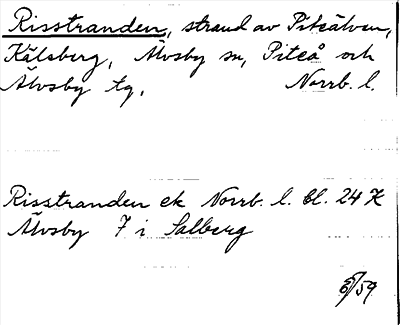 Risstranden, strand av Piteälven,
Kälsberg, Älvsby sn, Piteå och
Älvsby tg. Norrb. l.
Risstranden ek Norrb. l. bl. 24 K
Älvsby 7 i Salberg
/59